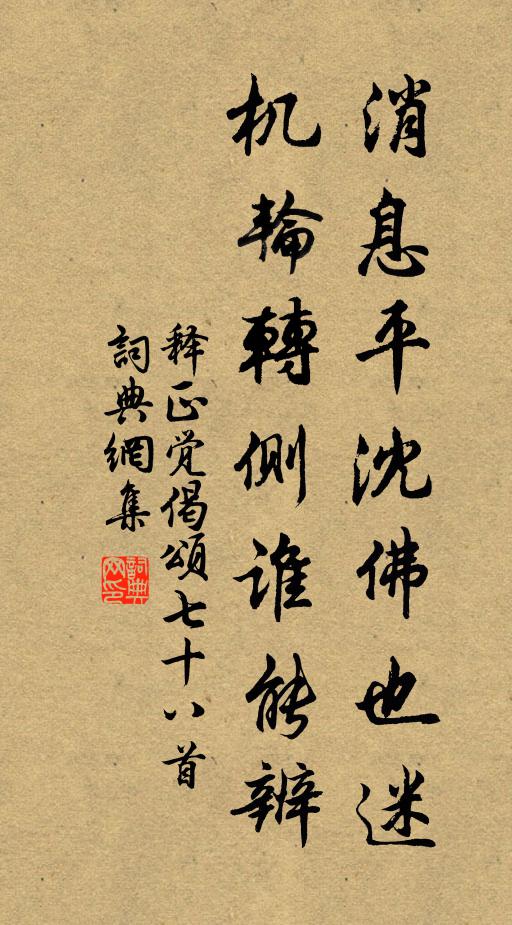 消息平沈佛也迷
机輪轉側誰能辨
释正覚偈頌七十八首
詞典網集
詞典網印